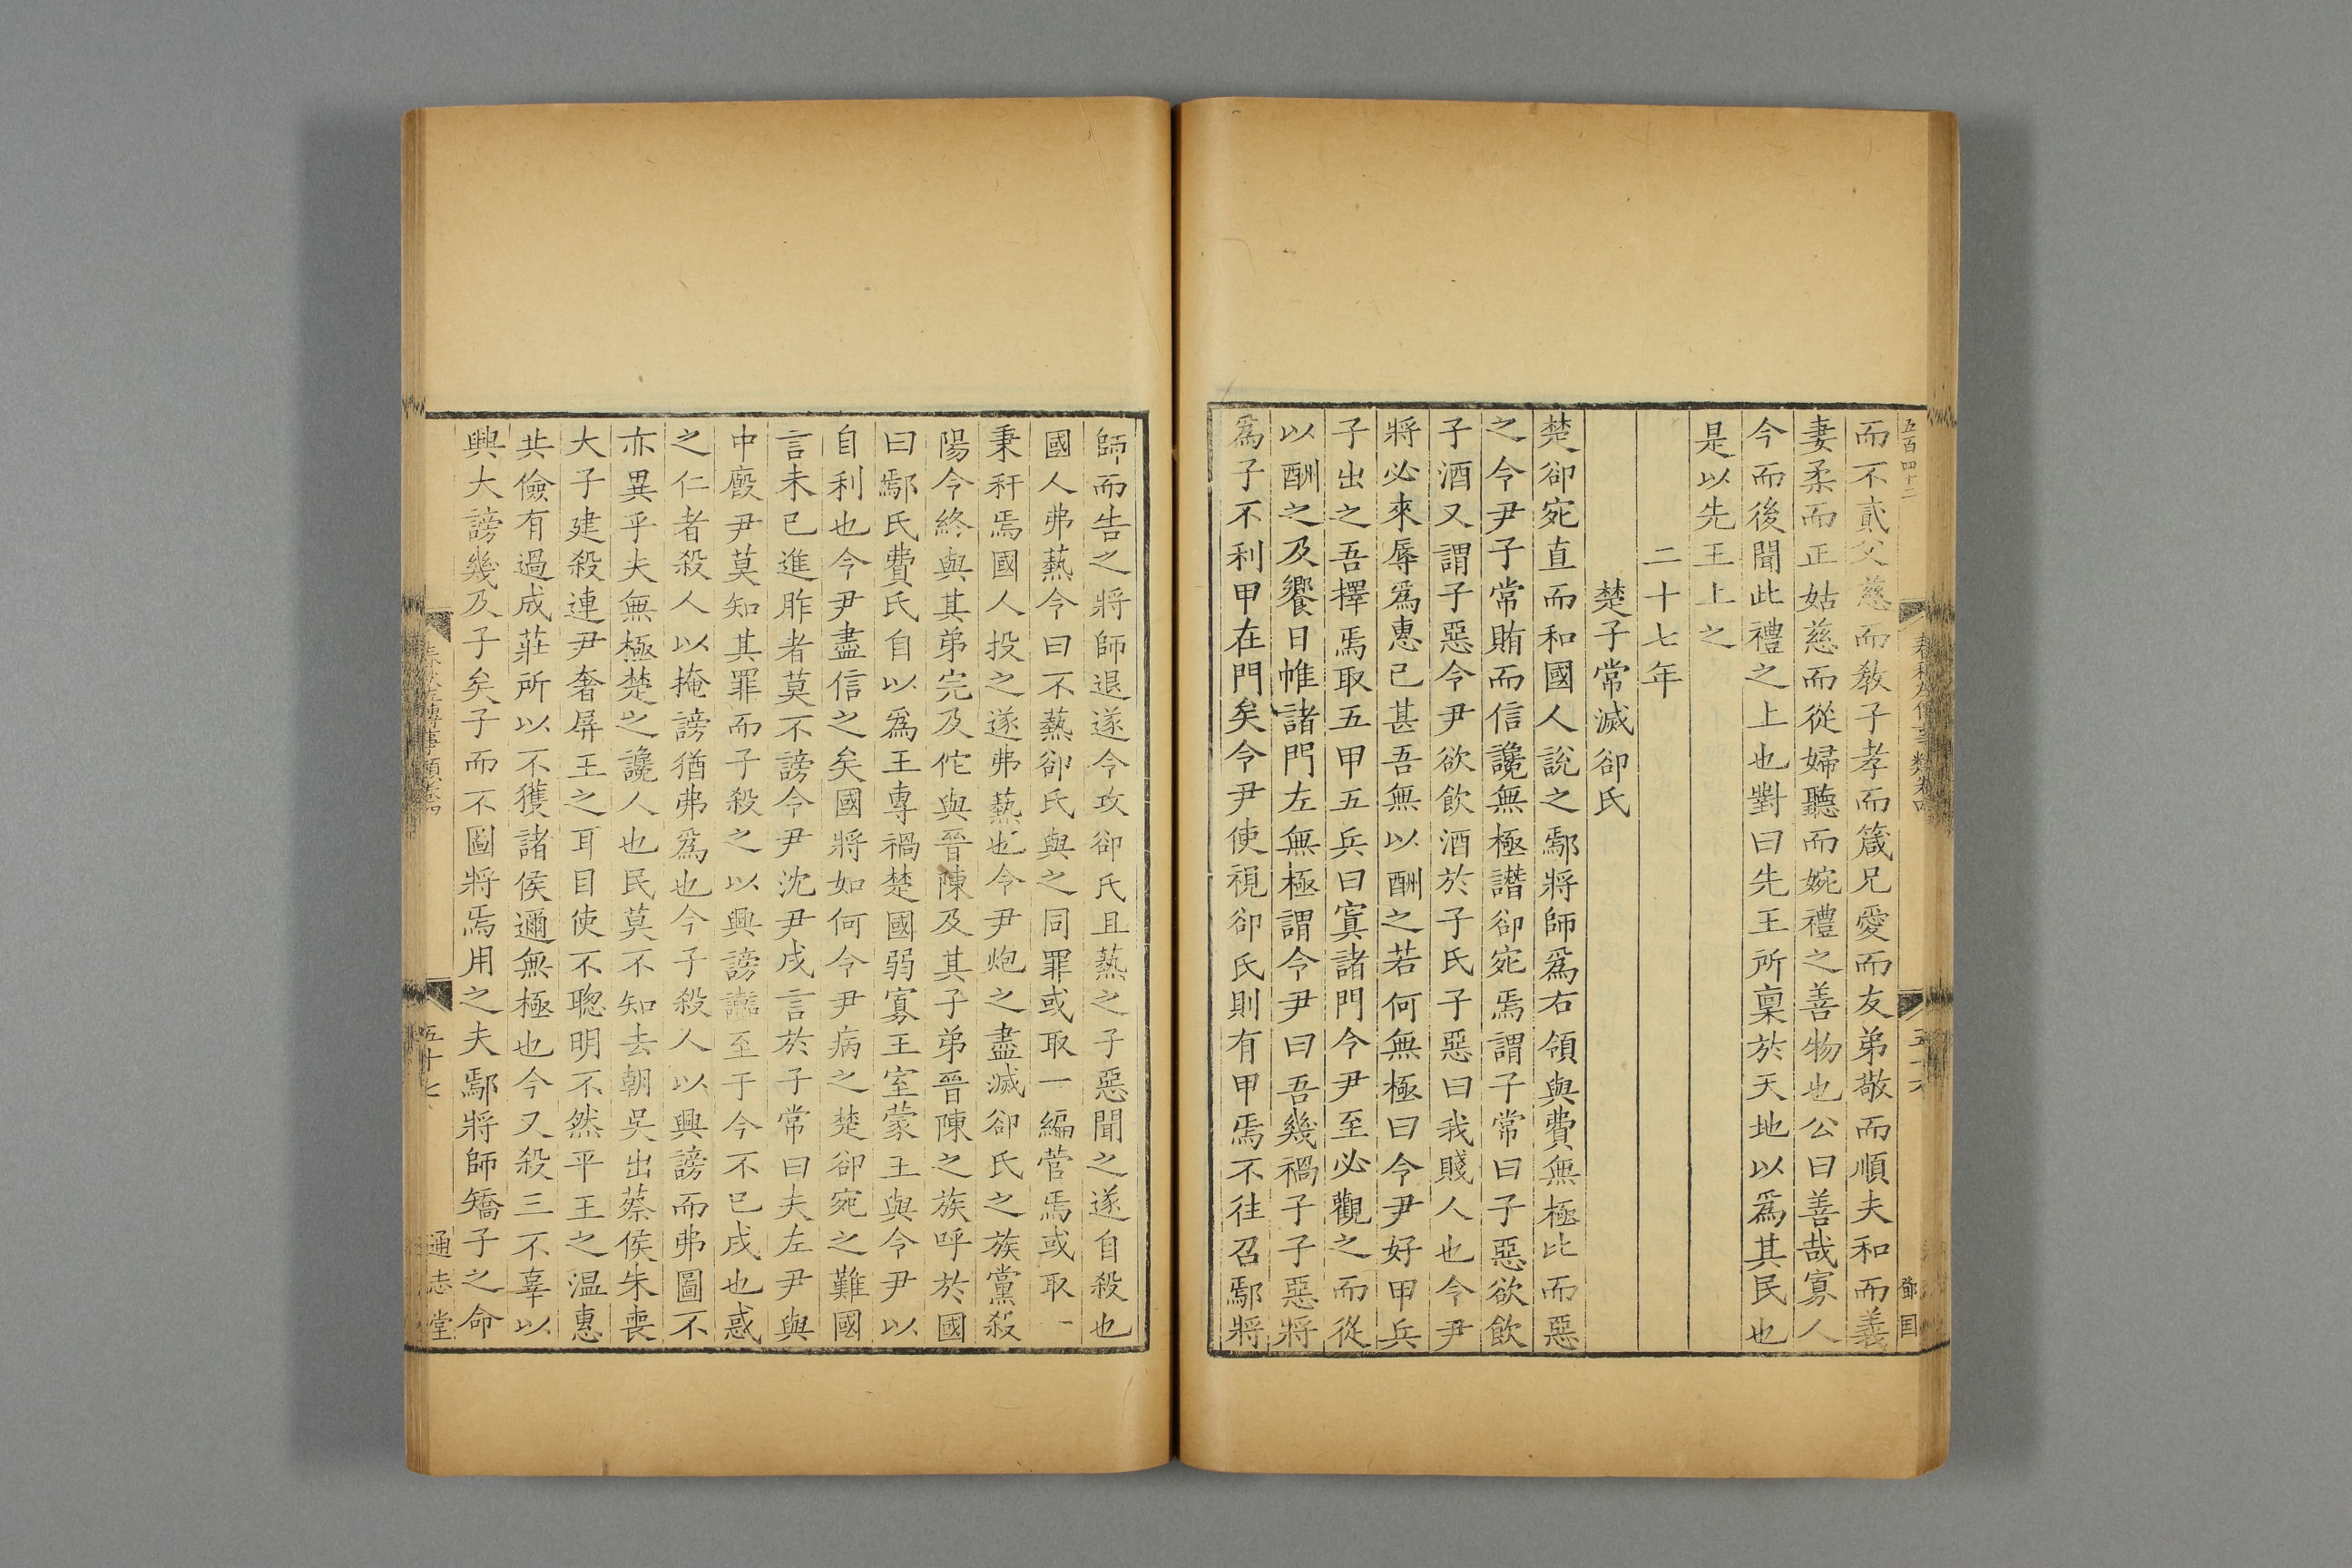 五百四十二
而不貳父慈而教子孝而箴兄愛而友弟敬而順夫和而義
妻柔而正姑慈而從婦聽而婉禮之善物也公曰善哉寡人
今而後聞此禮之上也對曰先王所稟於天地以爲其民也
是以先王上之
二十七年
楚子常滅郤氏
楚郤宛直而和國人說之鄢將師爲右領與費無極比而惡
之令尹子常賄而信讒無極譖郤宛焉謂子常曰子惡欲飲
子酒又謂子惡令尹欲飲酒於子氏子惡曰我賤人也令尹
將必來辱爲惠已甚吾無以酬之若何無極曰令尹好甲兵
子出之吾擇焉取五甲五兵曰寘諸門令尹至必觀之而從
以酬之及饗日帷諸門左無極謂令尹曰吾幾禍子子惡將
爲子不利甲在門矣令尹使視郤氏則有甲焉不往召鄢將
春秋左傳事類卷四
五十六
鄧国
師而告之將師退遂令攻郤氏且爇之子惡聞之遂自殺也
國人弗爇令曰不爇郤氏與之同罪或取一編菅焉或取一
秉秆焉國人投之遂弗爇也令尹炮之盡滅郤氏之族黨殺
陽令終與其弟完及佗與晉陳及其子弟晉陳之族呼於國
曰鄢氏費氏自以爲王專禍楚國弱寡王室蒙王與令尹以
自利也令尹盡信之矣國將如何令尹病之楚郤宛之難國
言未已進胙者莫不謗令尹沈尹戌言於子常曰夫左尹與
中廄尹莫知其罪而子殺之以興謗讟至于今不已戌也惑
之仁者殺人以掩謗猶弗爲也今子殺人以興謗而弗圖不
亦異乎夫無極楚之讒人也民莫不知去朝吳出蔡侯朱喪
大子建殺連尹奢屏王之耳目使不聰明不然平王之温惠
共儉有過成莊所以不獲諸侯邇無極也今又殺三不辜以
興大謗幾及子矣子而不圖將焉用之夫鄢將師矯子之命
春秋左傳事類卷四
五十七
通志堂